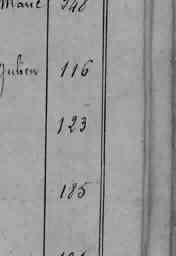 Marie 348
Julien 116
123
185